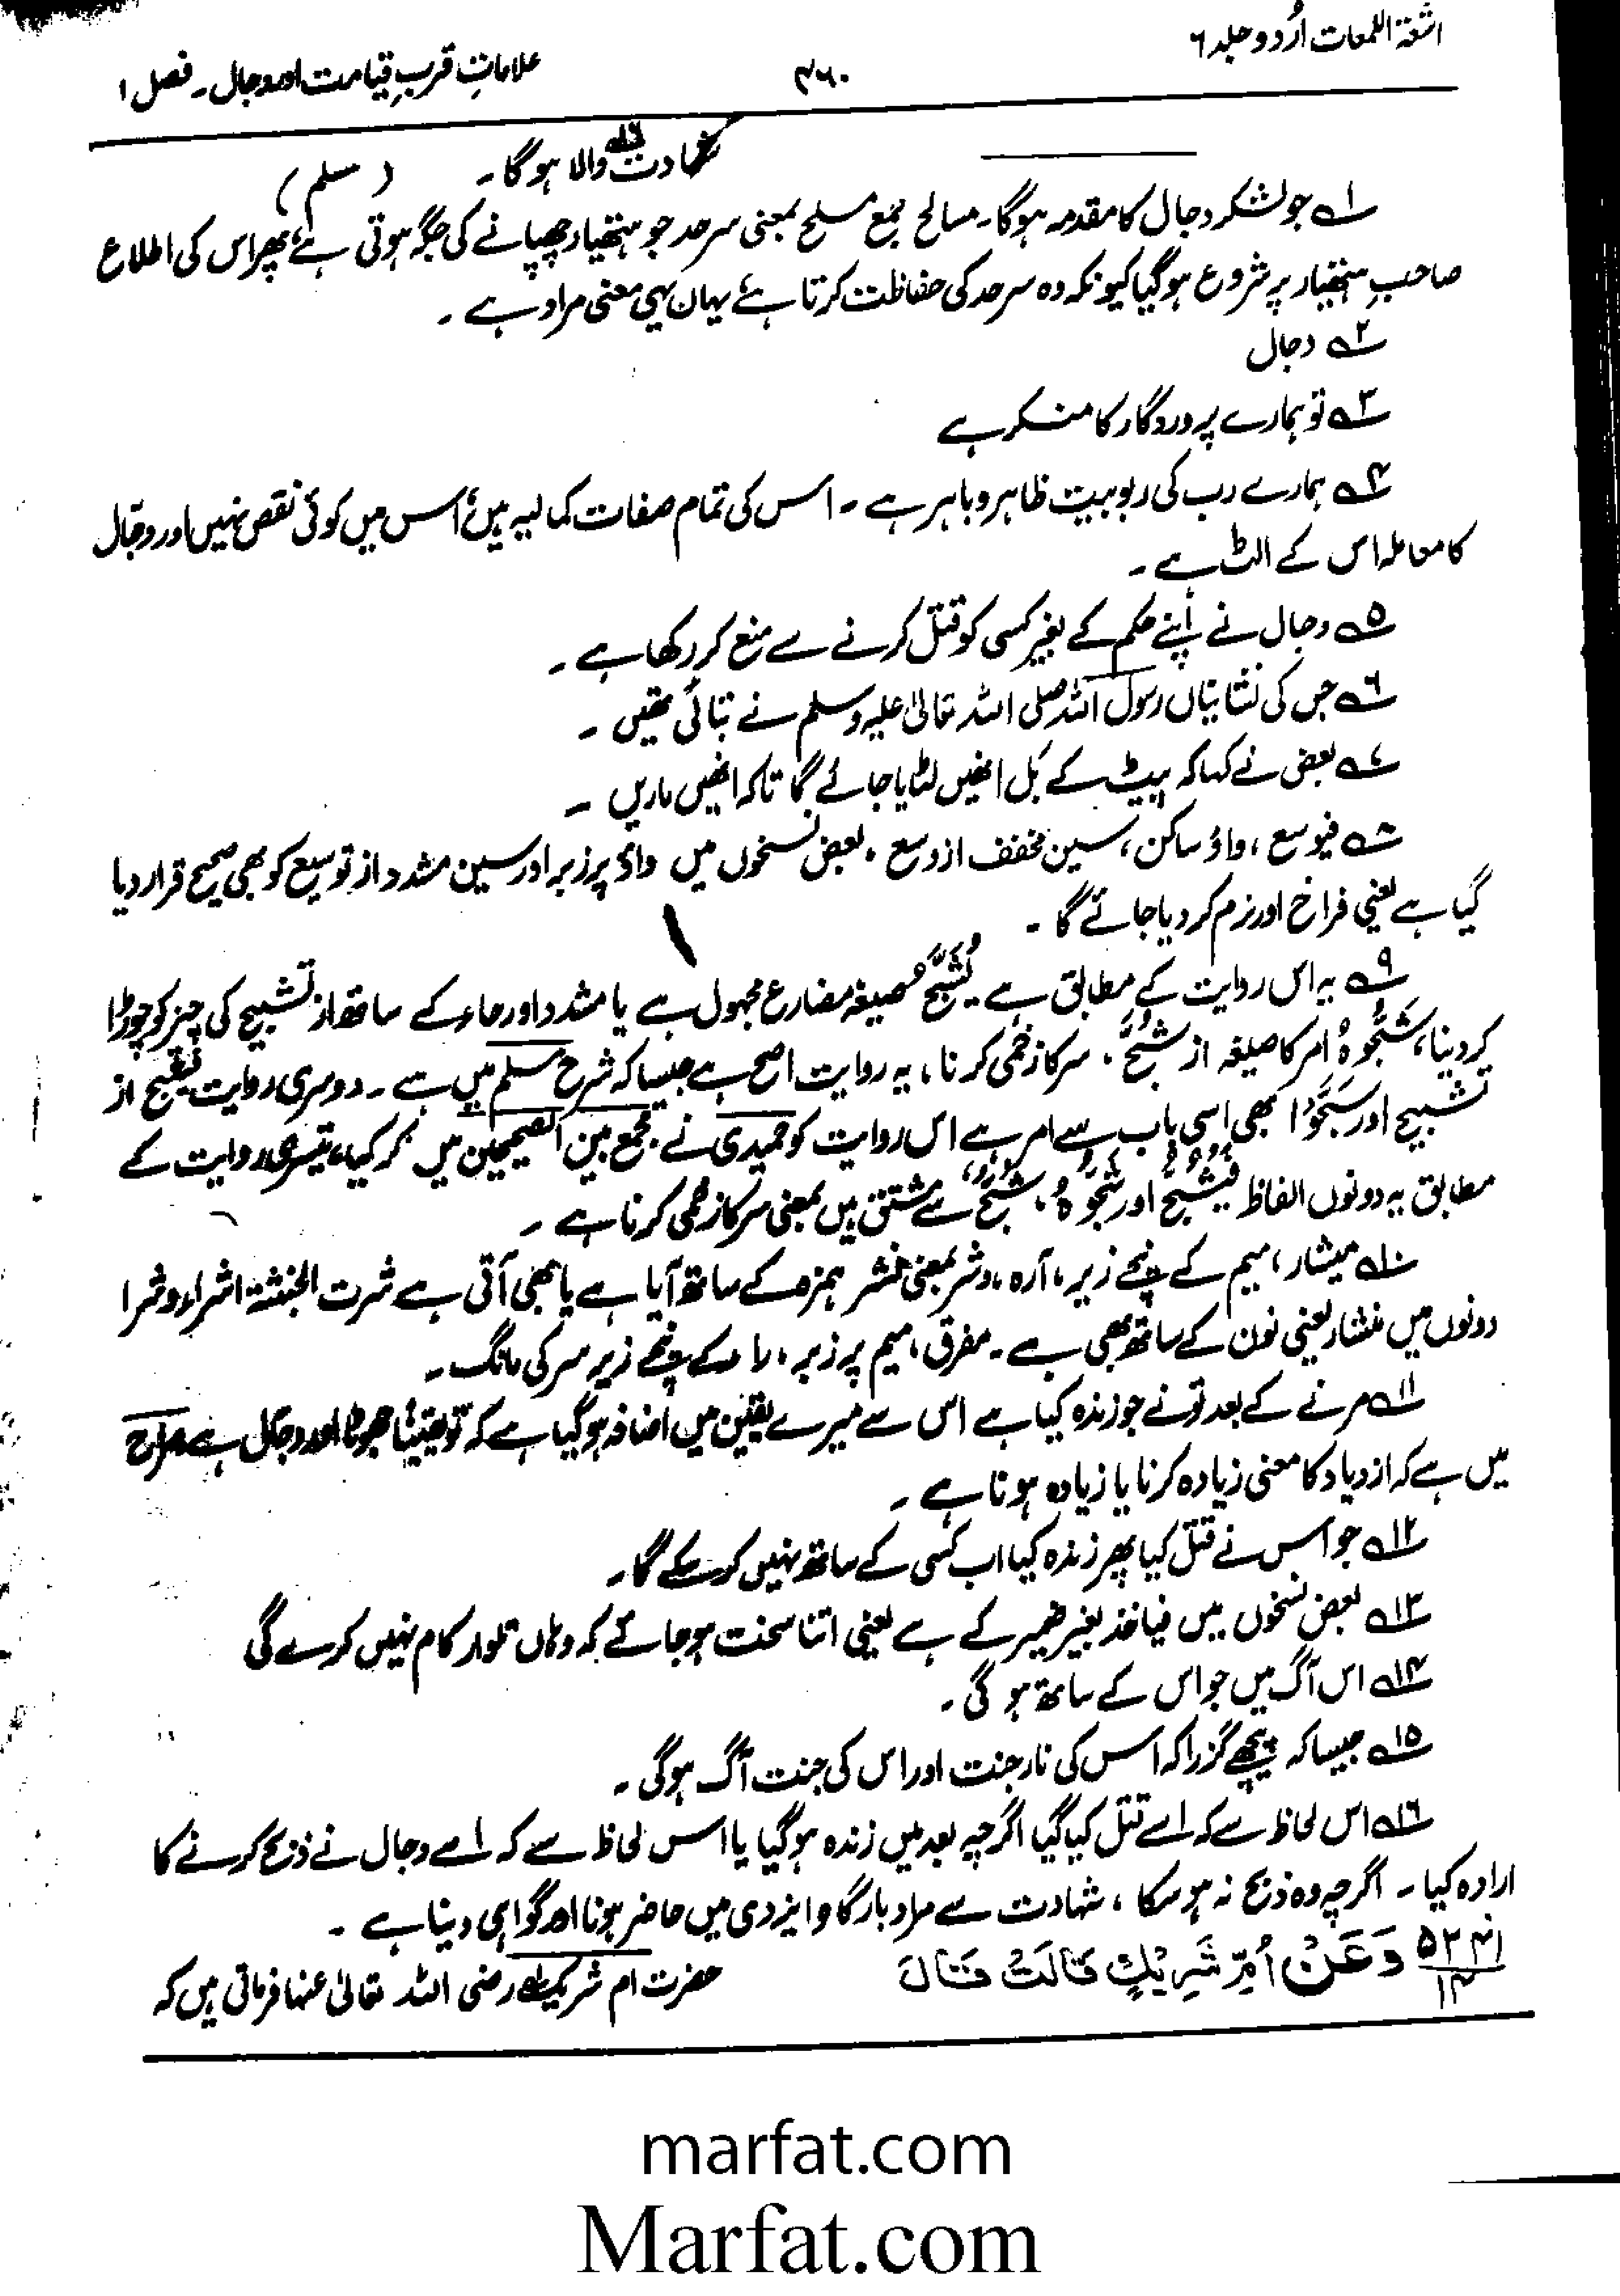 اشعۃ اللمعات اُردو جلد ۶
۴۶۰
علاماتِ قربِ قیامت اور دجال۔ فصل ۱
شہادت والا ہوگا۔ (مسلم)
۱؎ جو لشکر دجال کا مقدمہ ہوگا۔ مسالح جمع مسلح بمعنی سرحد جو ہتھیار چھپانے کی جگہ ہوتی ہے، پھر اس کی اطلاع
صاحبِ ہتھیار پر شروع ہوگیا کیونکہ وہ سرحد کی حفاظت کرتا ہے یہاں یہی معنی مراد ہے۔
۲؎ دجال
۳؎ تو ہمارے پروردگار کا منکر ہے
۴؎ ہمارے رب کی ربوبیت ظاہر و باہر ہے۔ اس کی تمام صفات کمالیہ ہیں اس میں کوئی نقص نہیں اور دجال
کا معاملہ اس کے الٹ ہے۔
۵؎ دجال نے اپنے حکم کے بغیر کسی کو قتل کرنے سے منع کر رکھا ہے۔
۶؎ جس کی نشانیاں رسول اللہ صلی اللہ تعالیٰ علیہ وسلم نے بتائی تھیں۔
۷؎ بعض نے کہا کہ پیٹ کے بَل انھیں لٹایا جائے گا تاکہ انھیں ماریں۔
۸؎ فیوسع، واؤ ساکن، سین مخفف از وسع، بعض نسخوں میں واؤ پر زبر اور سین مشدد از توسیع کو بھی صحیح قرار دیا
گیا ہے یعنی فراخ اور نرم کر دیا جائے گا۔
۹؎ یہ اس روایت کے مطابق ہے یُشَبَّحُ صیغہ مضارع مجہول ہے یا مشدد اور حاء کے ساتھ از تشبیح کی چیز کو چوڑا
کر دینا، شَجُّوہُ امر کا صیغہ از شَجٌّ، سر کا زخمی کرنا، یہ روایت اصح ہے جیسا کہ شرح مسلم میں ہے۔ دوسری روایت از
تشبیح اور بھی اسی باب سے امر ہے اس روایت کو حمیدی نے جمع بین الصحیحین میں ذکر کیا، تیسری روایت کے
مطابق یہ دونوں الفاظ فیُشَجُّ اور شُجُّوہُ، شَجٌّ سے مشتق ہیں بمعنی سر کا زخمی کرنا ہے۔
۱۰؎ میشار، میم کے نیچے زیر، آرہ، وشر بمعنی نشر ہمزہ کے ساتھ آیا ہے یا بھی آتی ہے شرت الخشبۃ اشراء وشرا
دونوں میں منشار یعنی نون کے ساتھ بھی ہے۔ مفرق، میم پر زبر، راء کے نیچے زیر سر کی مانگ۔
۱۱؎ مرنے کے بعد تو نے جو زندہ کیا ہے اس سے میرے یقین میں اضافہ ہوگیا ہے کہ تو یقیناً جھوٹا اور دجال ہے صراح
میں ہے کہ ازدیاد کا معنی زیادہ کرنا یا زیادہ ہونا ہے۔
۱۲؎ جو اس نے قتل کیا پھر زندہ کیا اب کسی کے ساتھ نہیں کر سکے گا۔
۱۳؎ بعض نسخوں میں فیاخذ بغیر ضمیر کے ہے یعنی اتنا سخت ہو جائے کہ وہاں تلوار کام نہیں کرے گی
۱۴؎ اس آگ میں جو اس کے ساتھ ہو گی۔
۱۵؎ جیسا کہ پیچھے گزرا کہ اس کی نار جنت اور اس کی جنت آگ ہوگی۔
۱۶؎ اس لحاظ سے کہ اسے قتل کیا گیا اگرچہ بعد میں زندہ ہوگیا یا اس لحاظ سے کہ اسے دجال نے ذبح کرنے کا
ارادہ کیا۔ اگرچہ وہ ذبح نہ ہو سکا، شہادت سے مراد بارگاہِ ایزدی میں حاضر ہونا اور گواہی دینا ہے۔
۵۲۴۱/۱۴ وَعَنْ اُمِّ شَرِیْكٍ قَالَتْ قَالَ
حضرت ام شریک رضی اللہ تعالیٰ عنہا فرماتی ہیں کہ
marfat.com
Marfat.com